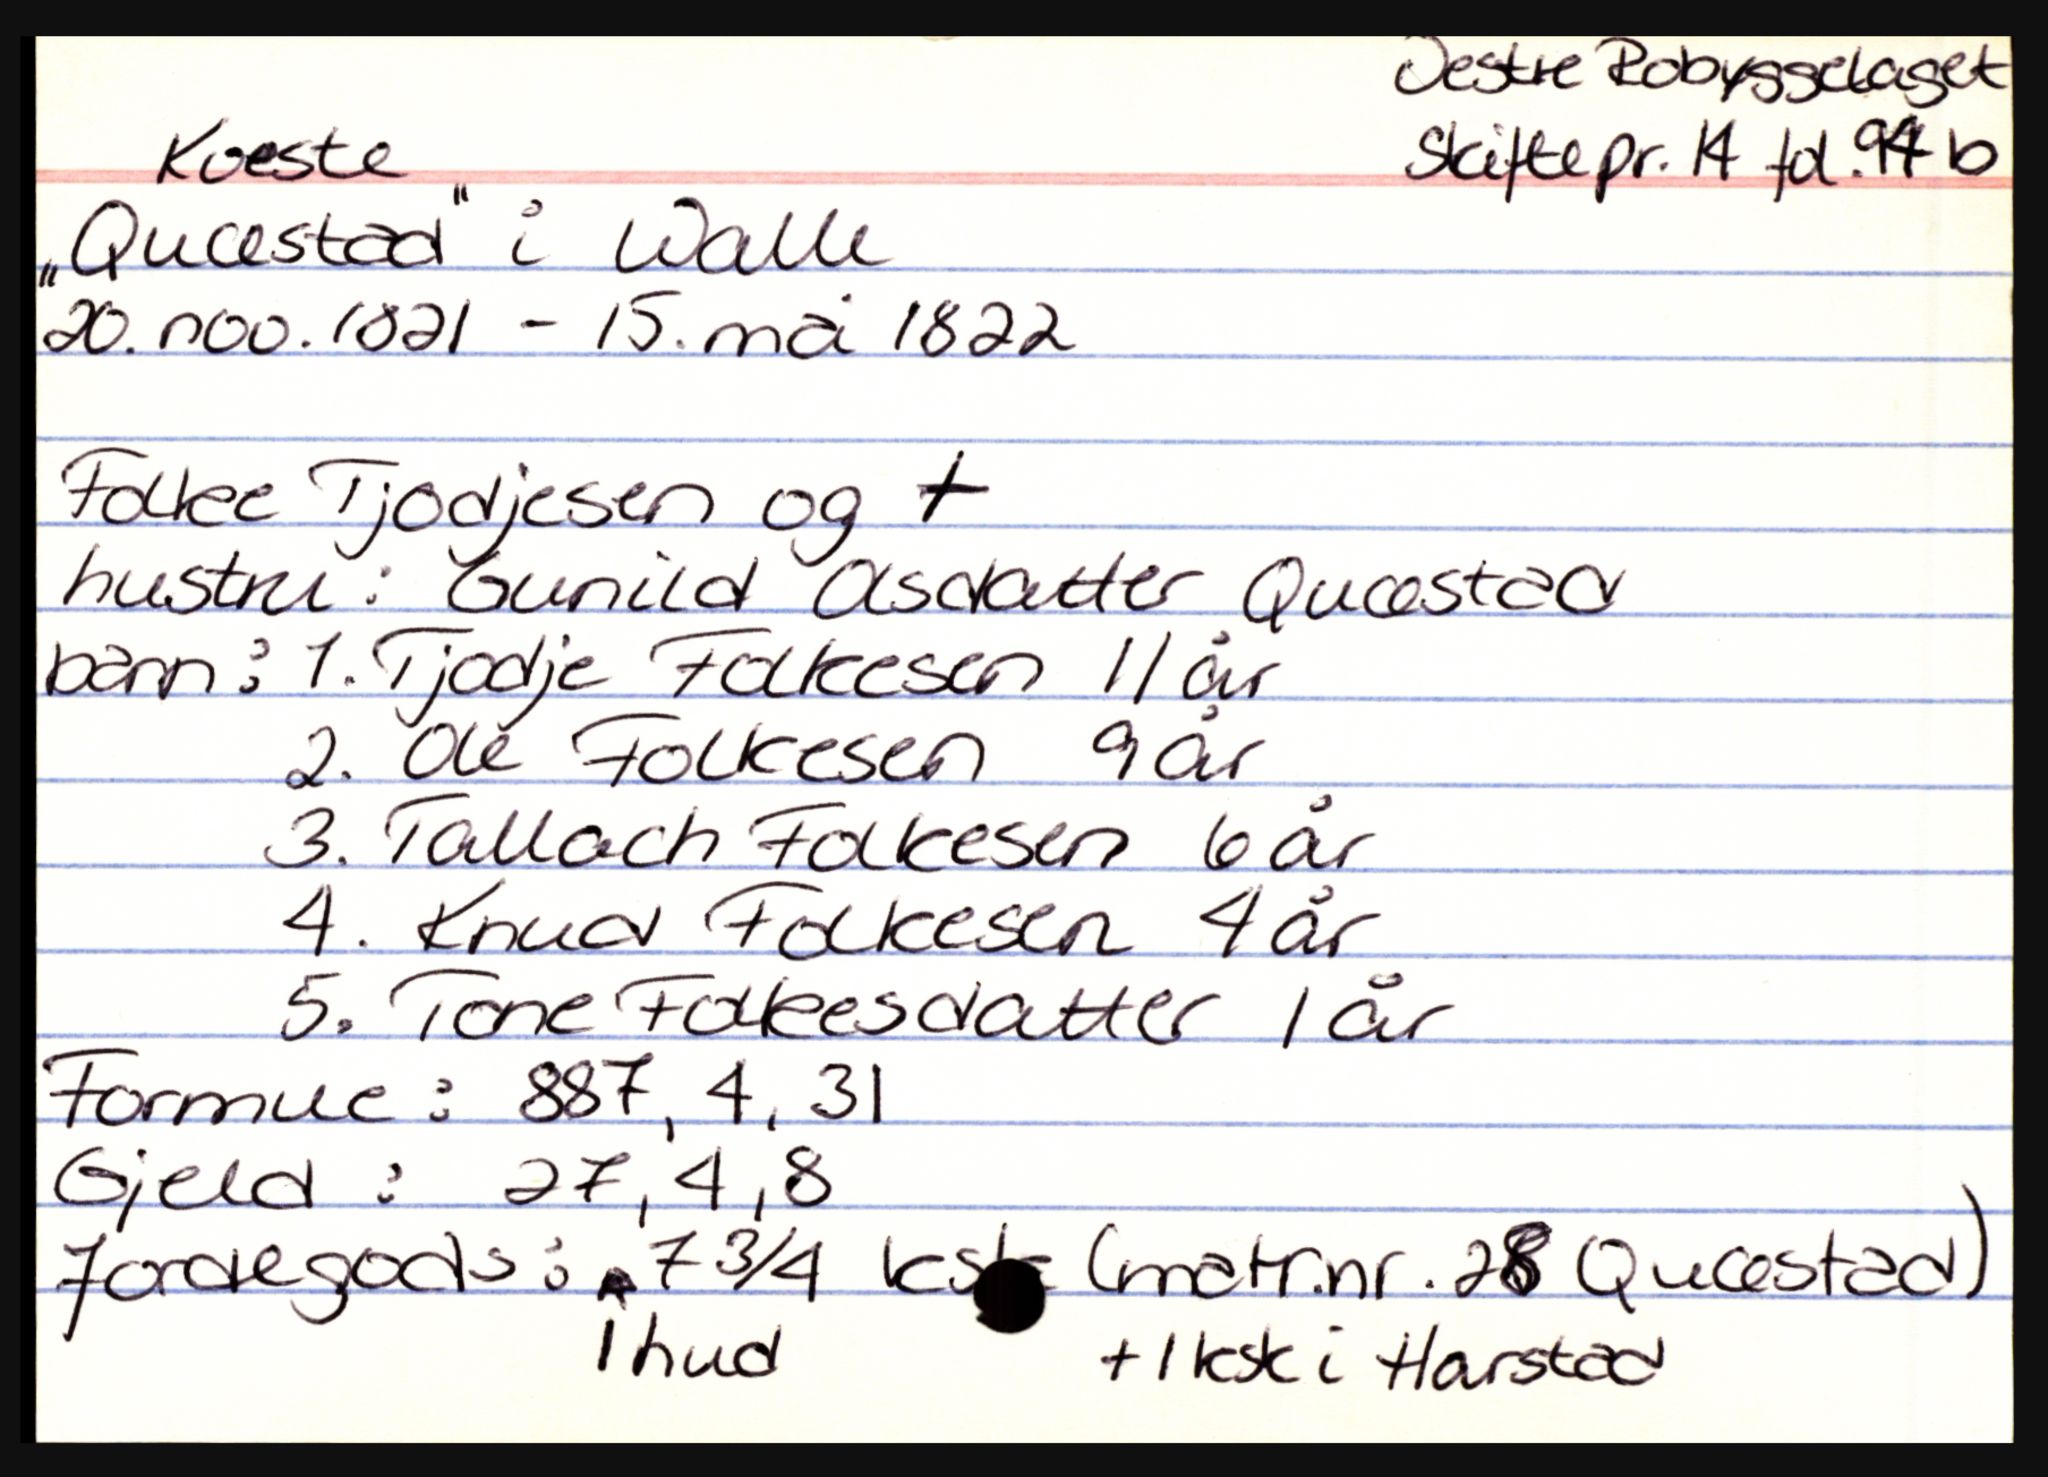 Vestre Robyggelaget
Skiftepr. 14 fol. 94 b
Kveste
„Quæstad" i Walle
20. nov. 1821 - 15. mai 1822
Folke Tjodjesen og +
hustru: Gunild Asdatter Quæstad
barn: 1. Tjodje Folkesen 11 år
2. Ole Folkesen 9 år
3. Tallach Folkesen 6 år
4. Knud Folkesen 4 år
5. Tone Folkesdatter 1 år
Formue: 887, 4, 31
Gjeld: 27, 4, 8
Jordegods: 7 3/4 ksk (matr.nr. 28 Quæstad)
1 hud + 1 ksk i Harstad